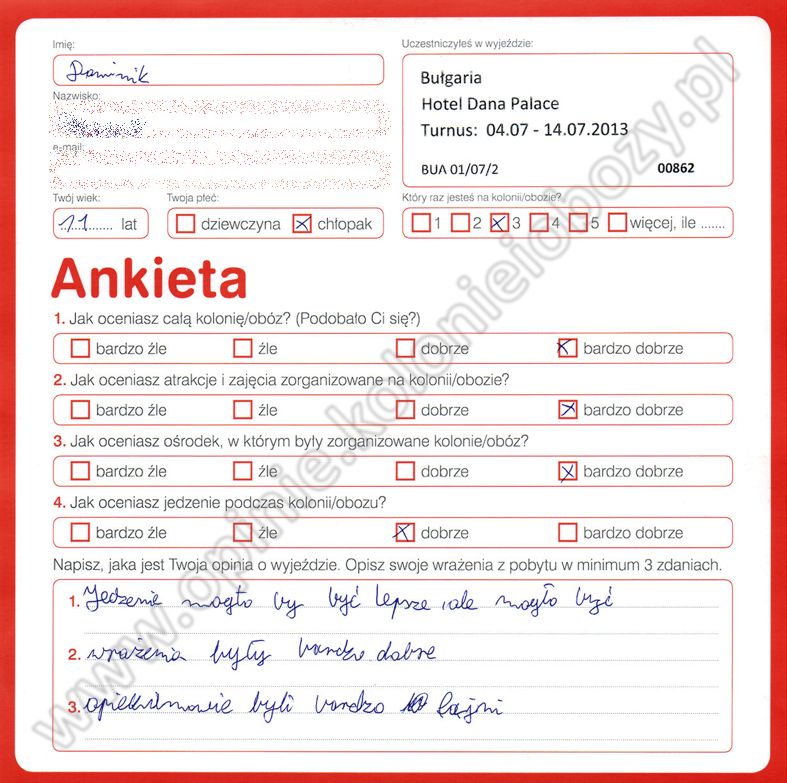 Imię:
Dominik
Uczestniczyłeś w wyjeździe:
Bułgaria
Hotel Dana Palace
Turnus: 04.07 - 14.07.2013
BUA 01/07/2
00862
Nazwisko:
e-mail:
Twój wiek:
11 lat
Twoja płeć:
dziewczyna chłopak
Który raz jesteś na kolonii/obozie?
1 2 3 4 5 więcej, ile .......
Ankieta
1. Jak oceniasz całą kolonię/obóz? (Podobało Ci się?)
bardzo źle źle dobrze bardzo dobrze
2. Jak oceniasz atrakcje i zajęcia zorganizowane na kolonii/obozie?
bardzo źle źle dobrze bardzo dobrze
3. Jak oceniasz ośrodek, w którym były zorganizowane kolonie/obóz?
bardzo źle źle dobrze bardzo dobrze
4. Jak oceniasz jedzenie podczas kolonii/obozu?
bardzo źle źle dobrze bardzo dobrze
Napisz, jaka jest Twoja opinia o wyjeździe. Opisz swoje wrażenia z pobytu w minimum 3 zdaniach.
1. Jedzenie mogło by być lepsze, ale mogło być
2. wrażenia były bardzo dobre
3. opiekunowie byli bardzo fajni
www.opinie.kolonieiobozy.pl